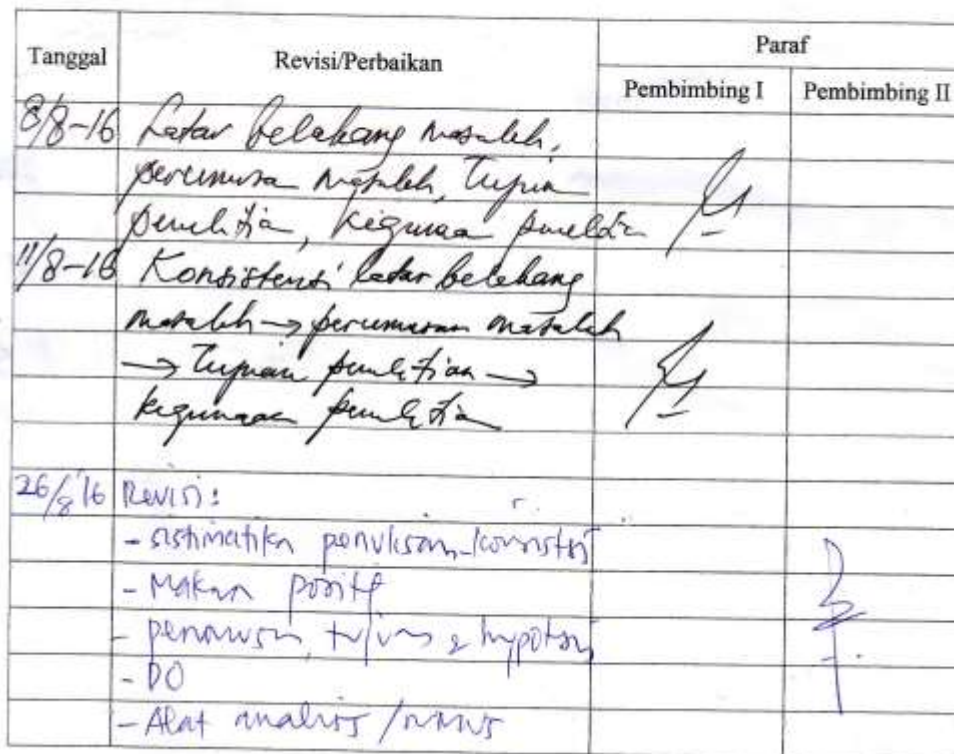 Tanggal Revisi/Perbaikan Paraf
Pembimbing I Pembimbing II
8/8-16 Latar belakang masalah,
perumusan masalah, Tujuan
penelitian, kegunaan penelitian
11/8-16 Konsistensi latar belakang
masalah → perumusan masalah
→ Tujuan penelitian →
kegunaan penelitian
26/8 16 Revisi:
- sistimatika penulisan konsistensi
- Makna positif
- perumusan, tujuan & hypotesis
- DO
- Alat analisis / rumus